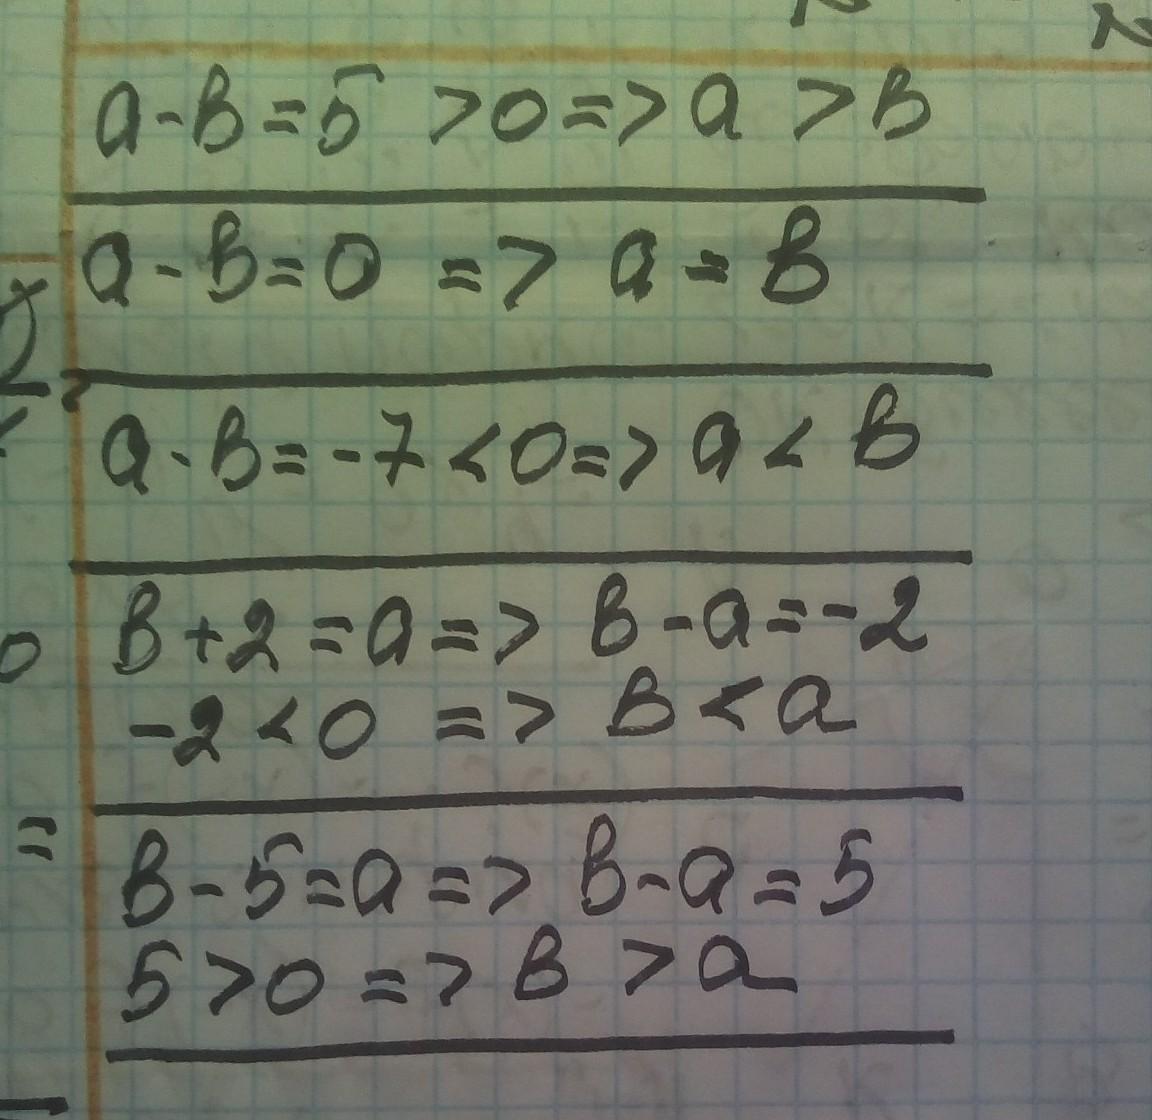 a - b = 5 > 0 => a > b
a - b = 0 => a = b
a - b = -7 < 0 => a < b
b + 2 = a => b - a = -2
-2 < 0 => b < a
b - 5 = a => b - a = 5
5 > 0 => b > a